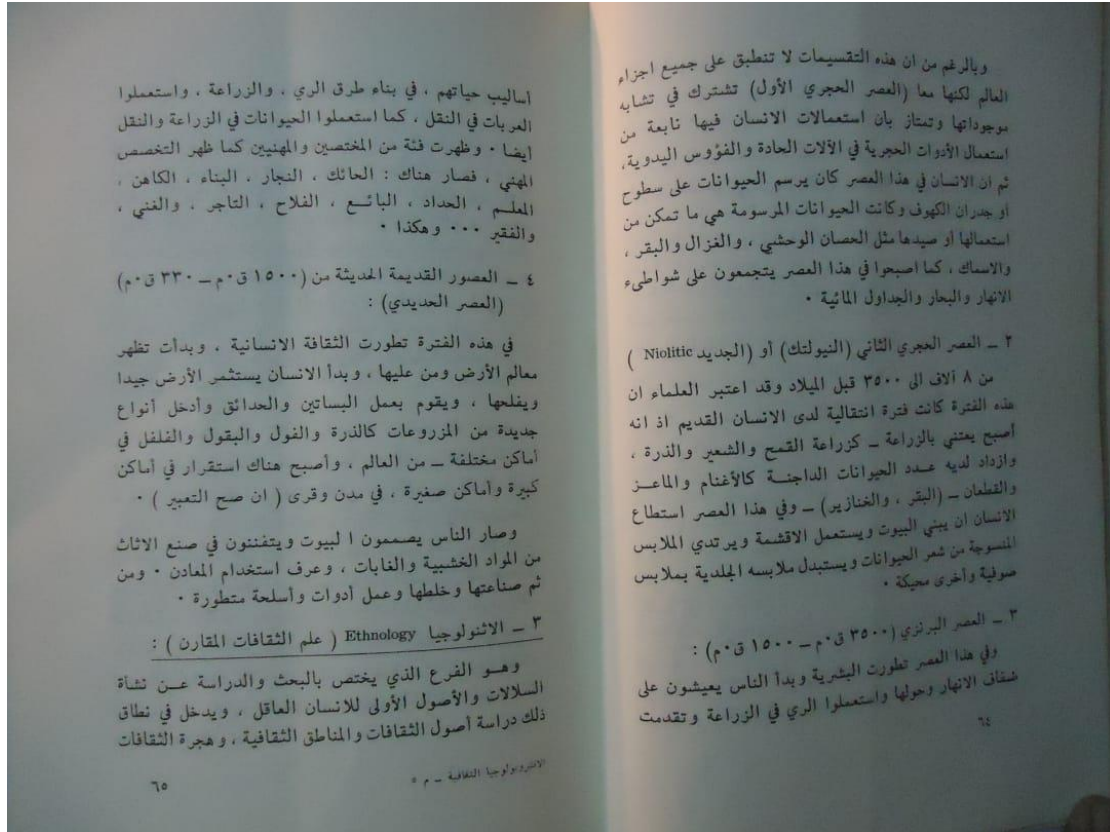 وبالرغم من ان هذه التقسيمات لا تنطبق على جميع اجزاء
العالم لكنها معا (العصر الحجري الأول) تشترك في تشابه
موجوداتها وتمتاز بان استعمالات الانسان فيها نابعة من
استعمال الأدوات الحجرية في الآلات الحادة والفؤوس اليدوية،
ثم ان الانسان في هذا العصر كان يرسم الحيوانات على سطوح
او جدران الكهوف وكانت الحيوانات المرسومة هي ما تمكن من
استعمالها أو صيدها مثل الحصان الوحشي ، والغزال والبقر ،
والاسماك ، كما اصبحوا في هذا العصر يتجمعون على شواطىء
الانهار والبحار والجداول المائية ٠
٢ ــ العصر الحجري الثاني (النيولتك) أو (الجديد Niolitic )
من ٨ آلاف الى ٣٥٠٠ قبل الميلاد وقد اعتبر العلماء ان
هذه الفترة كانت فترة انتقالية لدى الانسان القديم اذ انه
أصبح يعتني بالزراعة ــ كزراعة القمح والشعير والذرة ،
وازداد لديه عدد الحيوانات الداجنة كالأغنام والماعز
والقطعان ــ (البقر ، والخنازير) ــ وفي هذا العصر استطاع
الانسان ان يبني البيوت ويستعمل الاقشمة ويرتدي الملابس
المنسوجة من شعر الحيوانات ويستبدل ملابسه الجلدية بملابس
صوفية وأخرى محيكة ٠
٣ ــ العصر البرنزي (٣٥٠٠ ق٠م ــ ١٥٠٠ ق٠م) :
وفي هذا العصر تطورت البشرية وبدأ الناس يعيشون على
ضفاف الانهار وحولها واستعملوا الري في الزراعة وتقدمت
٦٤
أساليب حياتهم ، في بناء طرق الري ، والزراعة ، واستعملوا
العربات في النقل ، كما استعملوا الحيوانات في الزراعة والنقل
أيضا ٠ وظهرت فئة من المختصين والمهنيين كما ظهر التخصص
المهني ، فصار هناك : الحائك ، النجار ، البناء ، الكاهن ،
المعلم ، الحداد ، البائع ، الفلاح ، التاجر ، والغني ،
والفقير ٠٠٠ وهكذا ٠
٤ ــ العصور القديمة الحديثة من (١٥٠٠ ق٠م ــ ٣٣٠ ق٠م)
(العصر الحديدي) :
في هذه الفترة تطورت الثقافة الانسانية ، وبدأت تظهر
معالم الأرض ومن عليها ، وبدأ الانسان يستثمر الأرض جيدا
ويفلحها ، ويقوم بعمل البساتين والحدائق وأدخل أنواع
جديدة من المزروعات كالذرة والفول والبقول والفلفل في
أماكن مختلفة ــ من العالم ، وأصبح هناك استقرار في أماكن
كبيرة وأماكن صغيرة ، في مدن وقرى ( ان صح التعبير ) ٠
وصار الناس يصممون ا لبيوت ويتفننون في صنع الاثاث
من المواد الخشبية والغابات ، وعرف استخدام المعادن ٠ ومن
ثم صناعتها وخلطها وعمل أدوات وأسلحة متطورة ٠
٣ ــ الاثنولوجيا Ethnology ( علم الثقافات المقارن ) :
وهو الفرع الذي يختص بالبحث والدراسة عن نشأة
السلالات والأصول الأولى للانسان العاقل ، ويدخل في نطاق
ذلك دراسة أصول الثقافات والمناطق الثقافية ، وهجرة الثقافات
الانتروبولوجيا الثقافية ــ م ٥
٦٥